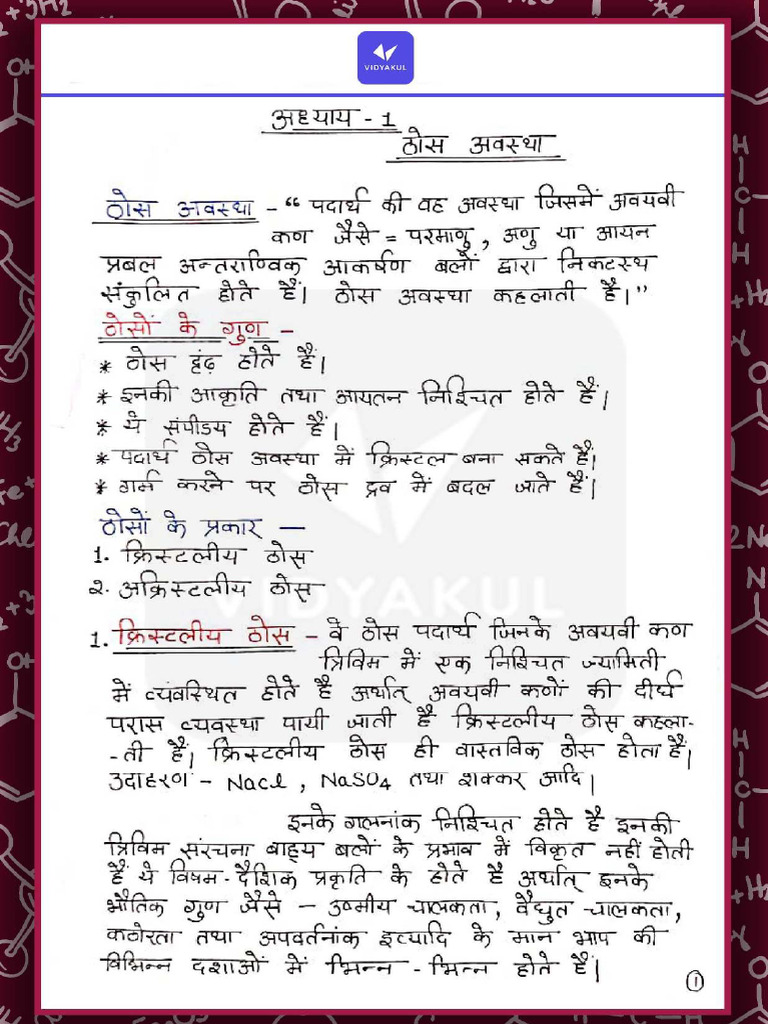 VIDYAKUL
अध्याय - 1
ठोस अवस्था
ठोस अवस्था - “ पदार्थ की वह अवस्था जिसमें अवयवी
कण जैसे = परमाणु , अणु या आयन
प्रबल अन्तराण्विक आकर्षण बलों द्वारा निकटस्थ
संकुलित होते हैं। ठोस अवस्था कहलाती है।”
ठोसों के गुण -
* ठोस दृंढ़ होते हैं।
* इनकी आकृति तथा आयतन निश्चित होते हैं।
* ये संपीडय होते हैं।
* पदार्थ ठोस अवस्था में क्रिस्टल बना सकते हैं।
* गर्म करने पर ठोस द्रव में बदल जाते हैं।
ठोसों के प्रकार —
1. क्रिस्टलीय ठोस
२. अक्रिस्टलीय ठोस
VIDYAKUL
1. क्रिस्टलीय ठोस - वे ठोस पदार्थ जिनके अवयवी कण
त्रिविम में एक निश्चित ज्यामिती
में व्यंवस्थित होते है अर्थात् अवयवी कणों की दीर्घ
परास व्यवस्था पायी जाती है क्रिस्टलीय ठोस कहला-
-ती हैं। क्रिस्टलीय ठोस ही वास्तविक ठोस होता हैं।
उदाहरण - Nacl , NaSO4 तथा शक्कर आदि।
इनके गलनांक निश्चित होते है इनकी
त्रिविम संरचना बाह्य बलों के प्रभाव में विकृत नहीं होती
हैं ये विषम-दैशिक प्रकृति के होते है अर्थात् इनके
भौतिक गुण जैसे - उष्मीय चालकता, वैधुत चालकता,
कठोरता तथा अपवर्तनांक इत्यादि के मान भाप की
विभिन्न दशाओं में भिन्न - भिन्न होते हैं।
1